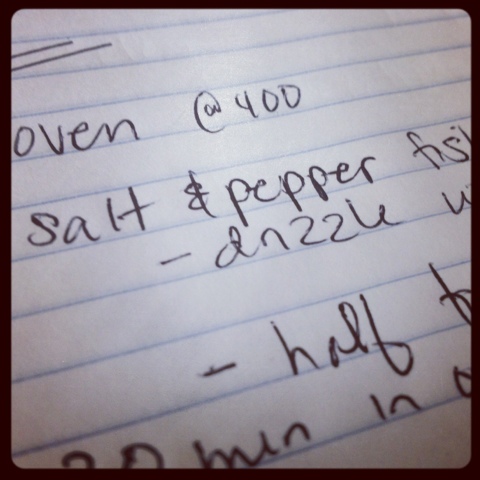 oven @ 400
salt & pepper fis
- drizzle w
- half
20 min in